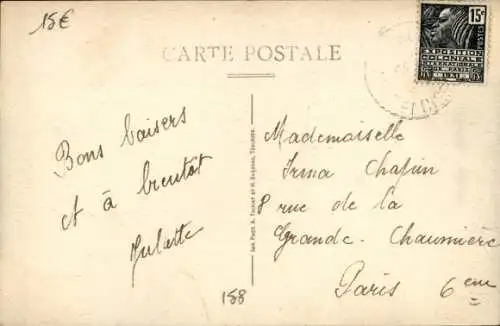 15€
CARTE POSTALE
15c
POSTES
EXPOSITION
COLONIALE
INTERNATIONALE
DE PARIS
1931
Bons baisers
et à bientot
Juliette
Mademoiselle
Irma Chapin
8 rue de la
Grande-Chaumière
Paris 6eme
158